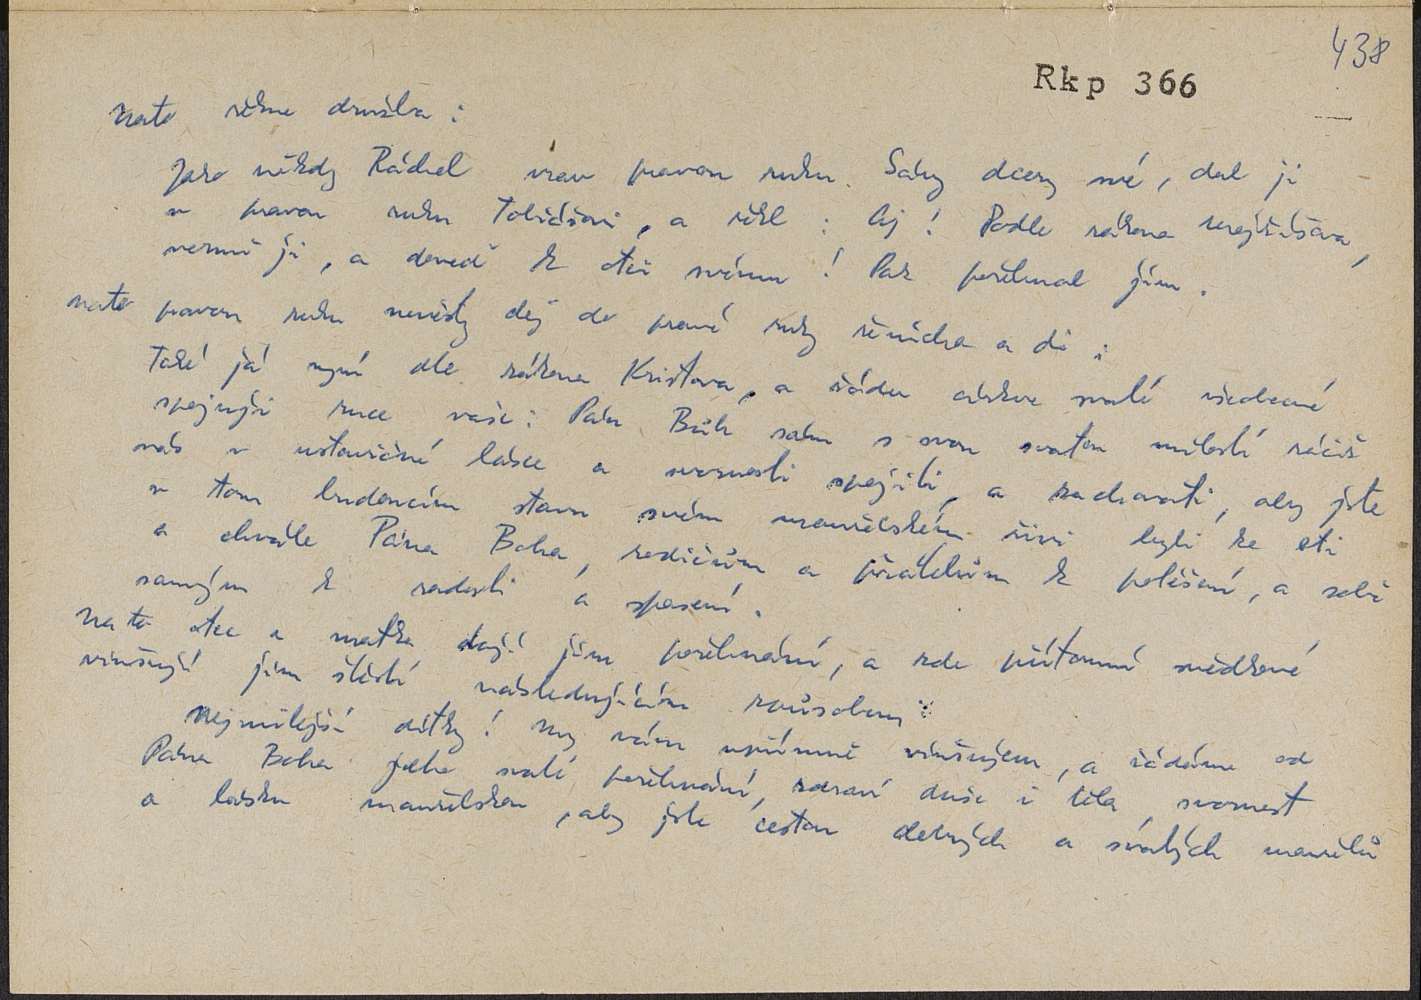 438
Rkp 366
nato řekne družba:
Jako někdy Ráchel vzav pravou ruku Sáry dcery své, dal ji
v pravou ruku Tobiášovi, a řekl: Aj! Podle zákona Mojžíšova,
vezmi ji, a doveď k otci svému! Pak požehnal jim.
nato pravou ruku nevěsty dej do pravé ruky ženicha a dí:
Také já nyní dle zákona Kristova, a řádu církve svaté všeobecné
spojuji ruce vaše: Pán Bůh sám s svou svatou milostí ráčiž
vás v ustavičné lásce a svornosti spojiti, a zachovati, aby jste
v tom budoucím stavu svém manželském živi byli ke cti
a chvále Pána Boha, rodičům a přátelům k potěšení, a sobě
samým k radosti a spasení.
Na to otec a matka dají jim požehnání, a zde přítomní svědkové
vinšují jim štěstí následujícím spůsobem:
Nejmilejší dítky! My vám upřímně vinšujem, a žádáme od
Pána Boha jeho svaté požehnání, zdraví duše i těla, svornost
a lásku manželskou, aby jste cestou dobrých a svatých manželů